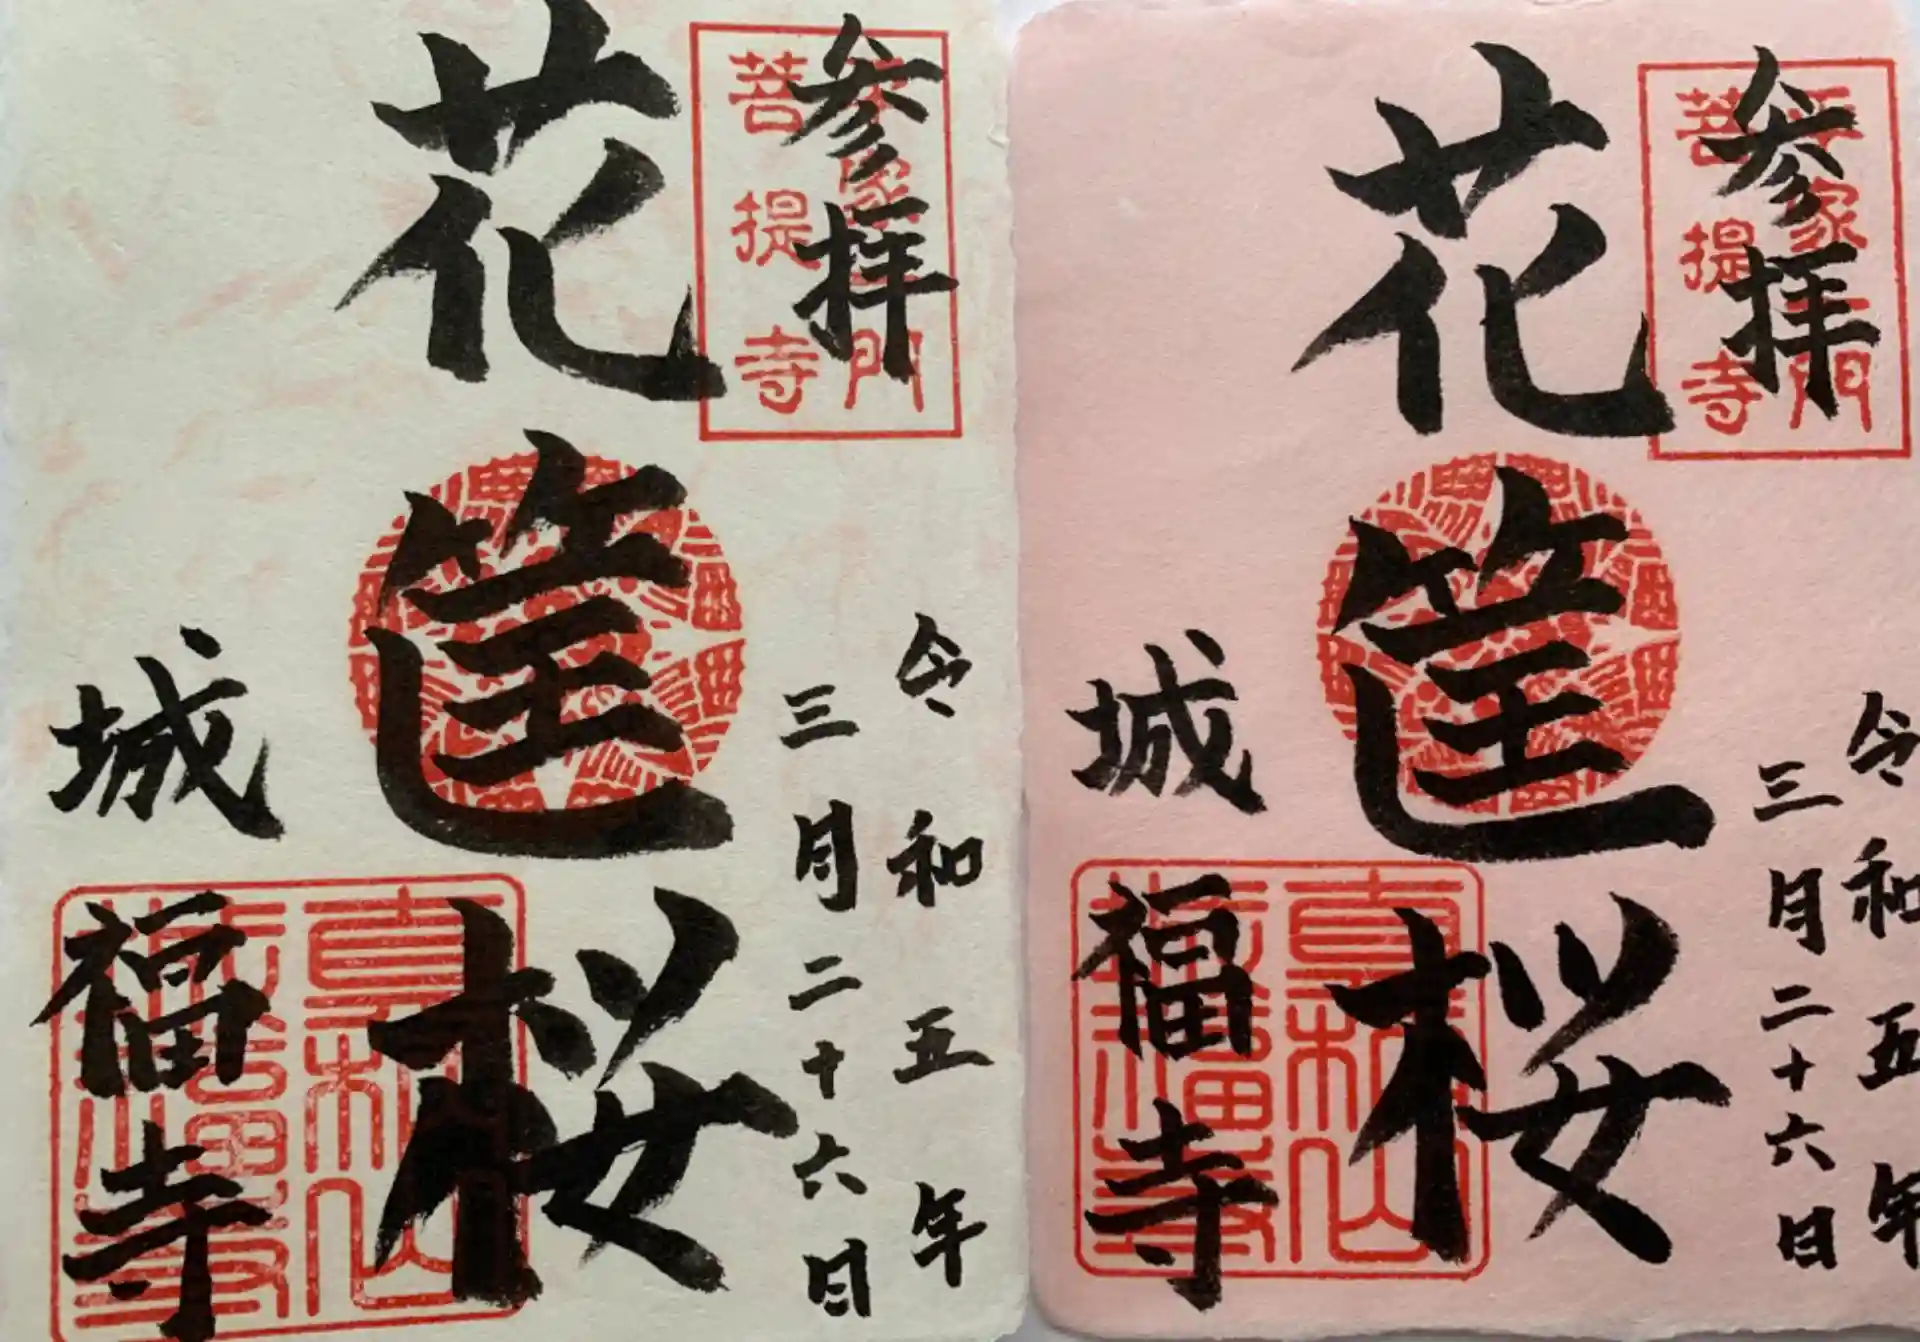 参拝
菩提寺
花筐桜
令和五年
三月二十六日
城福寺
参拝
菩提寺
花筐桜
令和五年
三月二十六日
城福寺